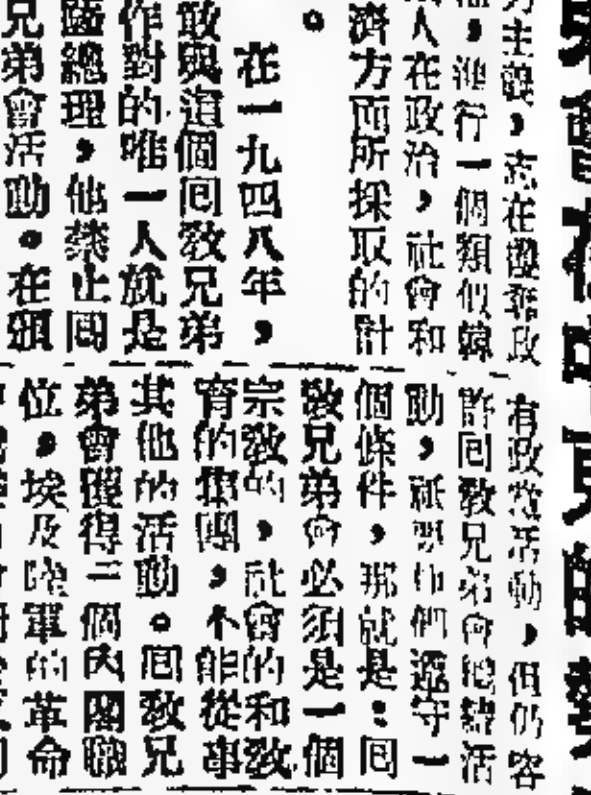 會在中東的勢
主義，志在攫奪政
，進行一個類似韓
人在政治，社會和
濟方面所採取的計
。
在一九四八年，
敢與這個囘敎兄弟
作對的唯一人就是
總理，他禁止囘
兄弟會活動。在頒
有政黨活動，但仍容
許囘敎兄弟會繼續活
動，祇要他們遵守一
個條件，那就是：囘
敎兄弟會必須是一個
宗敎的，社會的和敎
育的集團，不能從事
其他的活動。囘敎兄
弟會獲得二個內閣職
位，埃及陸軍的革命